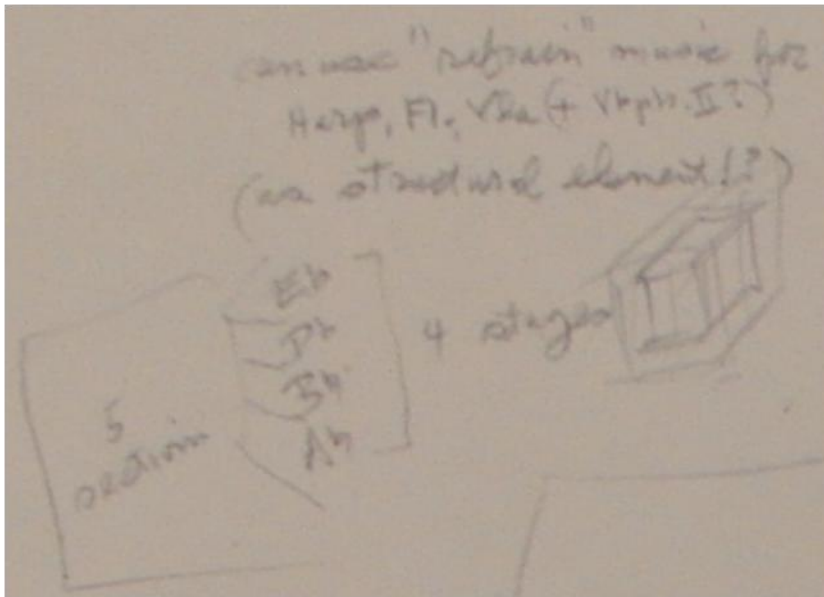 can use "refrain" music for
Harp, Fl., Vla (+ Vbph. II?)
(as structural element!?)
Eb
Db
Bb
Ab
4 stages
5
section